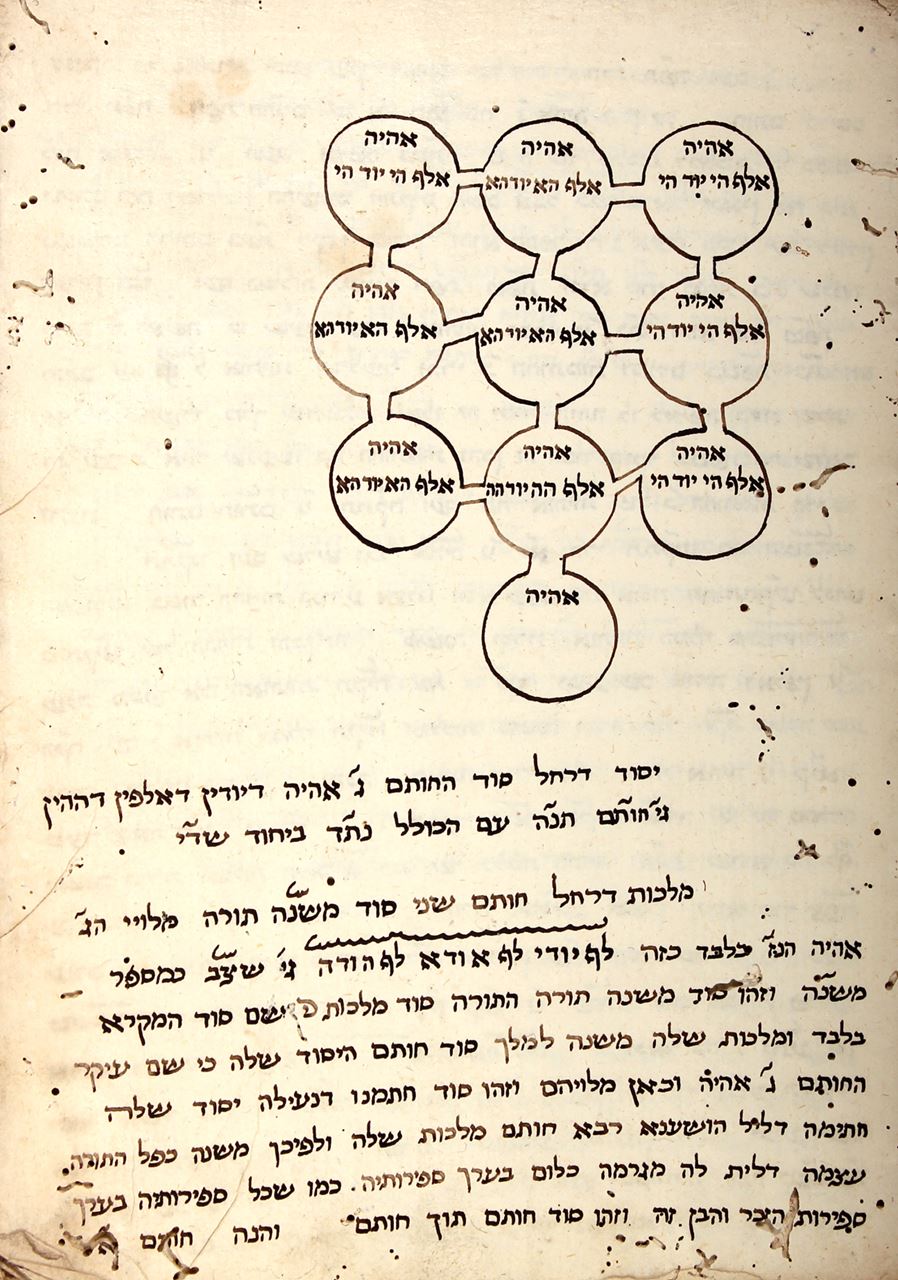 אהיה אהיה אהיה
אלף הי יוד הי אלף הא יוד הא אלף הי יוד הי
אהיה אהיה אהיה
אלף הי יוד הי אלף הא יוד הא אלף הא יוד הא
אהיה אהיה אהיה
אלף הי יוד הי אלף הה יוד הה אלף הא יוד הא
אהיה
יסוד דרחל סוד החותם ג׳ אהיה דיודין דאלפין דההין
גי׳ חותם תנ״ה עם הכולל נת״ד ביחוד שד״י
מלכות דרחל חותם שני סוד משנ״ה תורה מלויי הג׳
אהיה הנז׳ בלבד כזה לף יודי לף אודא לף הודה גי׳ שצ״ב כמספר
משנ״ה וזהו סוד משנה תורה התורה סוד מלכות שם סוד המקרא
בלבד ומלכות שלה משנה למלך סוד חותם היסוד שלה כי שם עיקר
החותם ג׳ אהיה וכאן מלויהם וזהו סוד חתמנו דנעילה יסוד שלה
חתימה דליל הושענא רבא חותם מלכות שלה ולפיכך משנה כפל התורה
עצמה דלית לה מגרמה כלום בערך ספירותיה. כמו שכל ספירותיה בערך
ספירות הזכר והבן זה וזהו סוד חותם תוך חותם והנה חותם